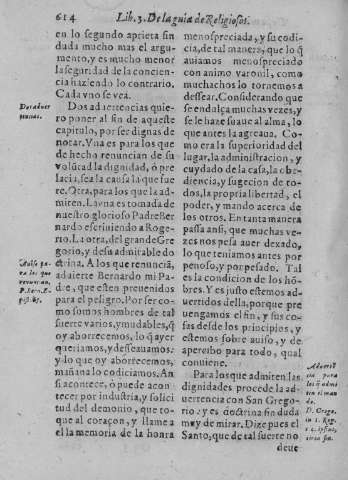 614 Lib. 3. De la guia de Religiosos.
en lo segundo aprieta sin
duda mucho mas el argu-
mento, y es mucho menor
la seguridad de la concien-
cia haziendo lo contrario.
Cada vno se vea.
Dos aduertencias quie-
ro poner al fin de aqueste
capitulo, por ser dignas de
notar. Vna es para los que
de hecho renuncian de su
volũtad la dignidad, ò pre
lacia, sea la causa la que fue
re. Otra, para los que la ad-
miren. La vna es tomada de
nuestro glorioso Padre Ber-
nardo escriuiendo a Roge-
rio. La otra, del grande Gre
gorio, y de su admirable do
ctrina. A los que renunciã,
aduierte Bernardo mi Pa-
dre, que esten preuenidos
para el peligro. Por ser co-
mo somos hombres de tal
suerte varios, y mudables, q̃
oy aborrecemos, lo q̃ ayer
queriamos, y desseauamos:
y lo que oy aborrecemos,
mañana lo codiciamos. An
si acontece, ò puede acon-
tecer por industria, y solici
tud del demonio, que to-
que al coraçon, y llame a
el la memoria de la honra
menospreciada, y su codi-
cia, de tal manera, que lo q̃
auiamos menospreciado
con animo varonil, como
muchachos lo tornemos a
dessear. Considerando que
se endulça muchas vezes, y
se le haze suaue al alma, lo
que antes la agreaua. Co-
mo era la superioridad del
lugar, la administracion, y
cuydado de la casa, la obe-
diencia, y sugecion de to-
dos, la propria libertad, el
poder, y mando acerca de
los otros. En tanta manera
passa ansi, que muchas ve-
zes nos pesa auer dexado,
lo que teniamos antes por
penoso, y por pesado. Tal
es la condicion de los hõ-
bres. Y es justo estemos ad-
uertidos della, porque pre
uengamos el fin, y sus co-
sas desde los principios, y
estemos sobre auiso, y de
apercibo para todo, qual
conuiene.
Para los que admiten las
dignidades procede la ad-
uertencia con San Grego-
rio: y es doctrina sin duda
muy de mirar. Dize pues el
Santo, que de tal suerte no
deue